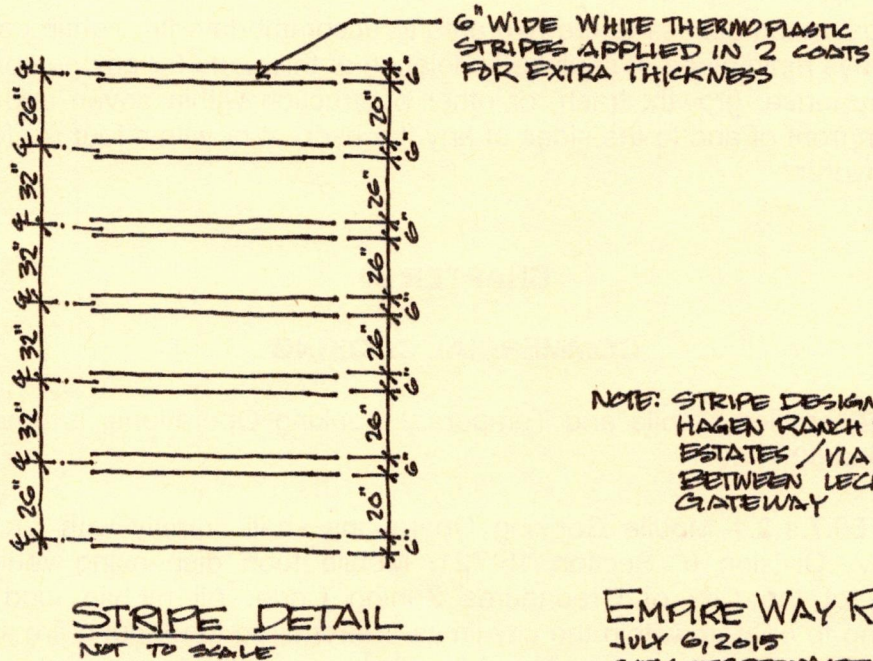 6" WIDE WHITE THERMOPLASTIC
STRIPES APPLIED IN 2 COATS
FOR EXTRA THICKNESS
℄ 26" ℄ 32" ℄ 32" ℄ 32" ℄ 32" ℄ 26" ℄
6" 20" 6" 26" 6" 26" 6" 26" 6" 26" 6" 20" 6"
NOTE: STRIPE DESIGN
HAGEN RANCH
ESTATES / VIA
BETWEEN
GATEWAY
STRIPE DETAIL
NOT TO SCALE
EMPIRE WAY
JULY 6, 2015